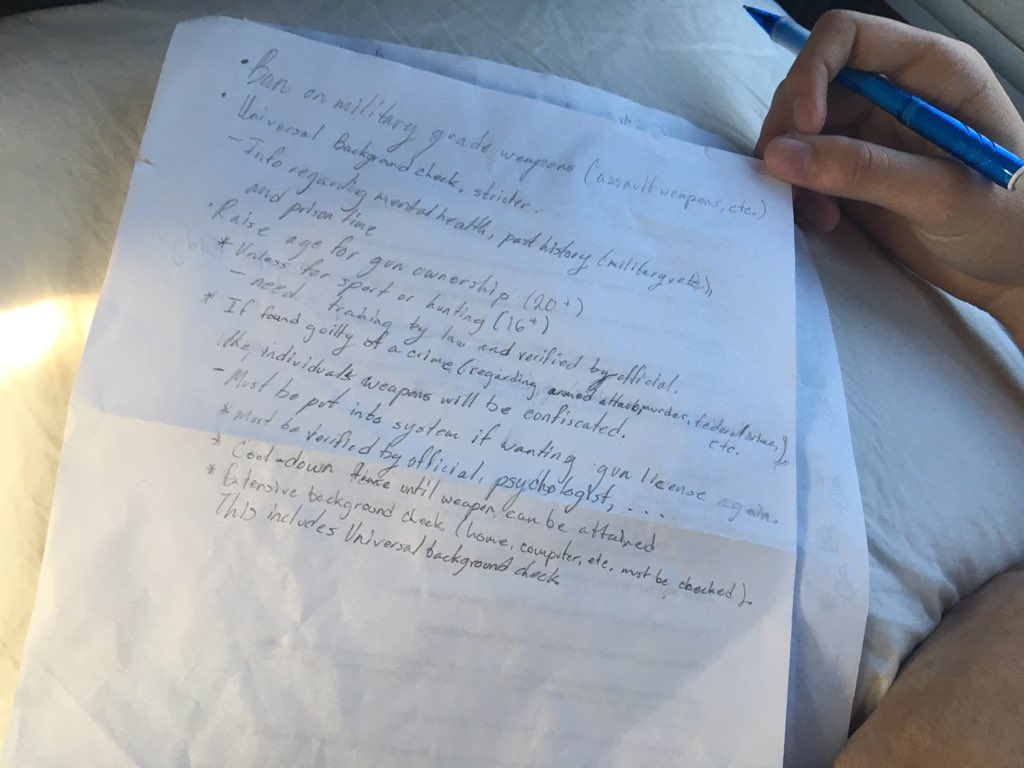 • Ban on military grade weapons (assault weapons, etc.)
• Universal Background check, stricter.
– Info regarding mental health, past history (military, etc.),
and prison time
• Raise age for gun ownership (20+)
* Unless for sport or hunting (16+)
– need training by law and verified by official.
* If found guilty of a crime (regarding armed attack, murder, federal crime, etc.)
the individuals weapons will be confiscated.
– Must be put into system if wanting gun license again.
* Must be verified by official, psychologist, ...
* Cool-down time until weapon can be attained
* Extensive background check (home, computer, etc. must be checked).
This includes Universal background check